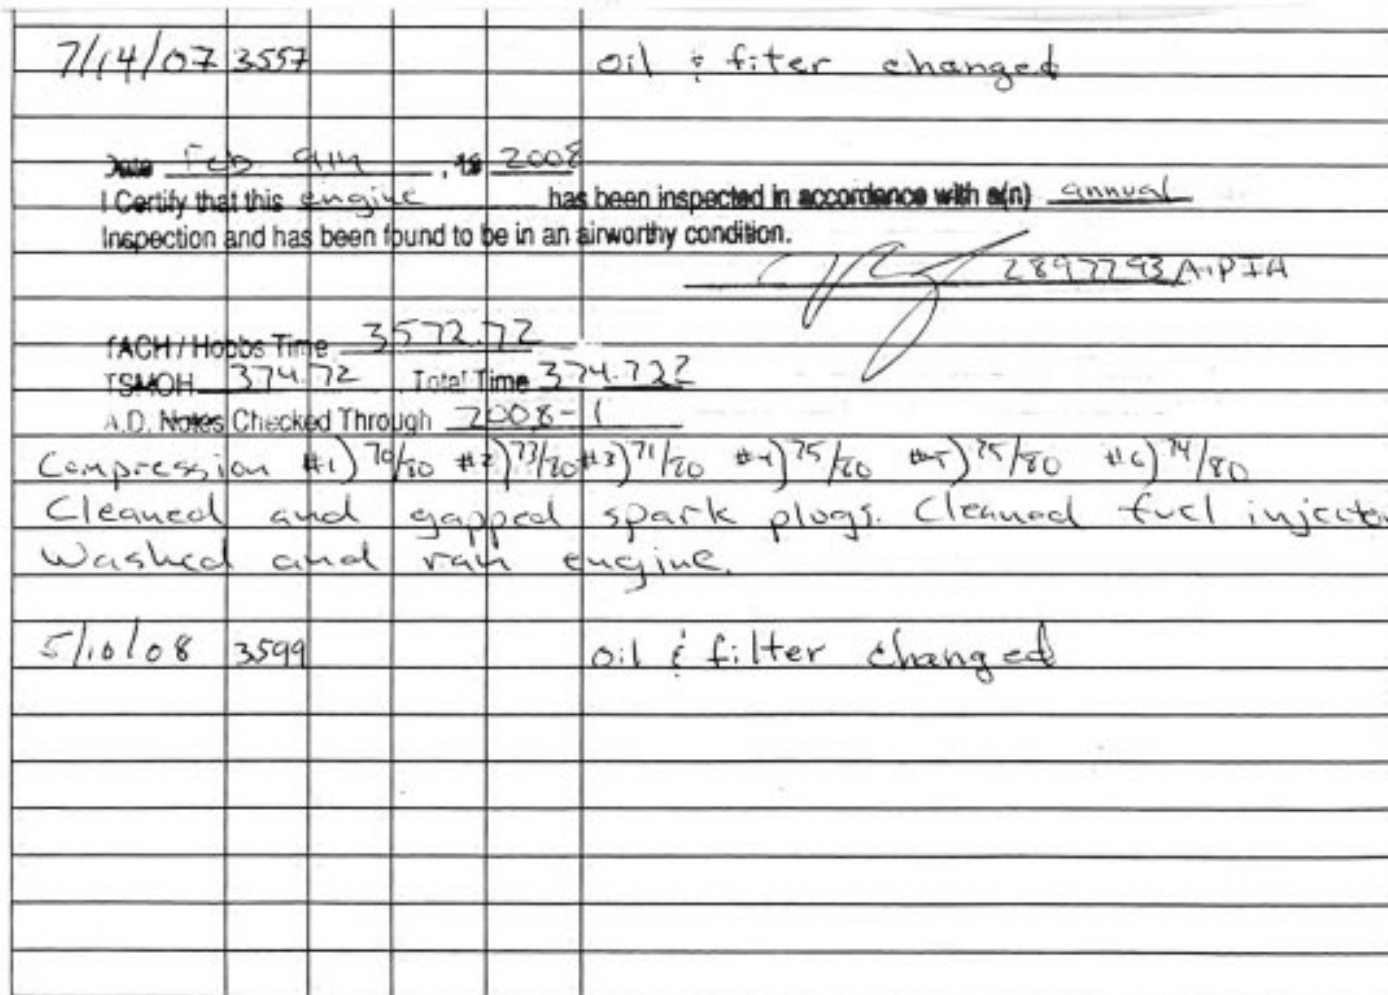 7/14/07 3557 oil & fiter changed
Date Feb 9th, 19 2008
I Certify that this engine has been inspected in accordance with a(n) annual
Inspection and has been found to be in an airworthy condition.
2897793 A+P IA
TACH / Hobbs Time 3572.72
TSMOH 374.72 Total Time 374.722
A.D. Notes Checked Through 2008-1
Compression #1) 70/80 #2) 73/80 #3) 71/80 #4) 75/80 #5) 75/80 #6) 74/80
Cleaned and gapped spark plugs. Cleaned fuel injecto
Washed and ran engine.
5/10/08 3599 oil & filter changed